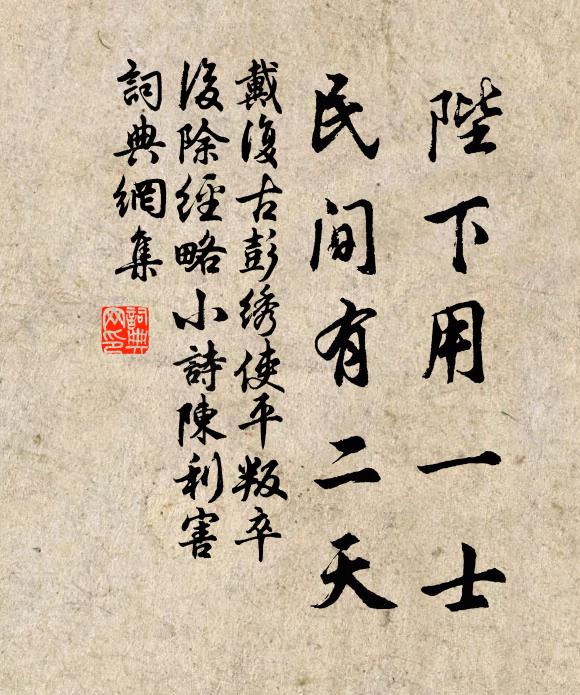 陛下用一士
民间有二天
戴復古彭绣使平叛卒
後除經略小詩陳利害
詞典網集
詞典網印